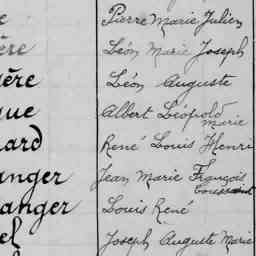 Pierre Marie Julien
ère Léon Marie Joseph
ère Léon Auguste
que Albert Léopold
Marie
ard René Louis Henri
anger Jean Marie François
Toussaint
anger Louis René
el Joseph Auguste Marie